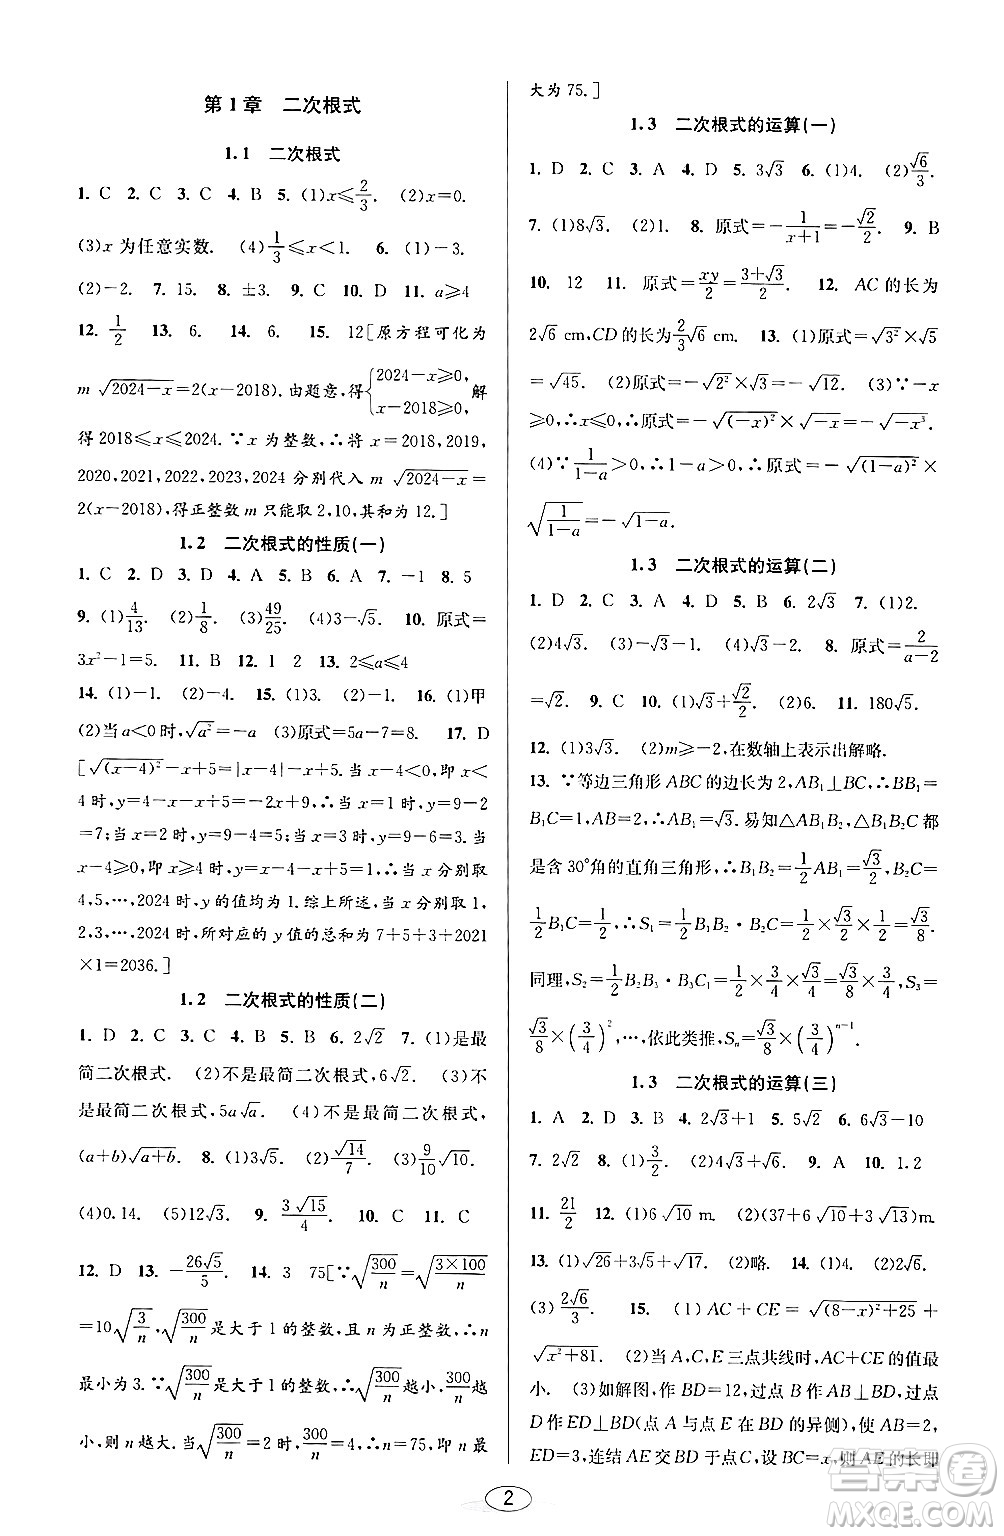 第 1 章　二次根式
1.1　二次根式
1. C　2. C　3. C　4. B　5. (1)x≤2/3.　(2)x=0.
(3)x 为任意实数.　(4)1/3≤x<1.　6. (1)-3.
(2)-2.　7. 15.　8. ±3.　9. C　10. D　11. a≥4
12. 1/2　13. 6.　14. 6.　15. 12[原方程可化为
m√(2024-x)=2(x-2018). 由题意,得{2024-x≥0, x-2018≥0, 解
得 2018≤x≤2024. ∵x 为整数,∴将 x=2018,2019,
2020,2021,2022,2023,2024 分别代入 m√(2024-x)=
2(x-2018),得正整数 m 只能取 2,10,其和为 12.]
1.2　二次根式的性质(一)
1. C　2. D　3. D　4. A　5. B　6. A　7. -1　8. 5
9. (1)4/13.　(2)1/8.　(3)49/25.　(4)6.　10. 原式=
3x²-1=5.　11. B　12. 1　2　13. 2≤a≤4
14. (1)-1.　(2)-4.　15. (1)3.　(2)1.　16. (1)甲
(2)当 a<0 时,√(a²)=-a　(3)原式=5a-7=8.　17. D
[√((x-4)²)-x+5=|x-4|-x+5=1,即当 x<
4 时,y=4-x-x+5=9-2x;∴当 x=1 时,y=9-2
=7;当 x=2 时,y=9-4=5;当 x=3 时,y=9-6=3.
x-4≥0,即 x≥4 时,y=x-4-x+5=1;∴当 x 分别取
4,5,…,2024 时,y 的值均为 1.综上所述,当 x 分别取 1,
2,3,…,2024 时,所对应的 y 值的总和为 7+5+3+2021
×1=2036.]
1.2　二次根式的性质(二)
1. D　2. C　3. C　4. B　5. B　6. 2√2　7. (1)是最
简二次根式.　(2)不是最简二次根式,6√2.　(3)不
是最简二次根式,5a√a.　(4)不是最简二次根式,
(a+b)√(a+b).　8. (1)3√5.　(2)√14/7.　(3)9/10√10.
(4)0.14.　(5)12√3.　9. 3√15/4.　10. C　11. C
12. D　13. -26√5/5.　14. 3　75[∵√(300/n)=√(3×100/n)
=10√(3/n),√(300/n)是大于 1 的整数,且 n 为正整数,∴n
最小为 3.∵√(300/n)是大于 1 的整数,∴√(300/n)越小,300/n越
小,则 n 越大.当√(300/n)=2 时,300/n=4,∴n=75,∴n 最
大为 75.]
1.3　二次根式的运算(一)
1. D　2. C　3. A　4. D　5. 3√3　6. (1)4.　(2)√6/3.
7. (1)8√3.　(2)1.　8. 原式=-1/(x+1)=-√2/2.　9. B
10. 12　11. 原式=xy/2=(3+√3)/2.　12. AC 的长为
2√6 cm,CD的长为2/3√6 cm.　13. (1)原式=√(3²)×√5
=√45.　(2)原式=-√(2²)×√3=-√12.　(3)∵-x
≥0,∴x≤0,∴原式=-√((-x)²)×√(-x)=-√(-x³).
(4)∵1/(1-a)>0,∴1-a>0,∴原式=-√((1-a)²)×
√(1/(1-a))=-√(1-a).
1.3　二次根式的运算(二)
1. D　2. A　3. D　4. D　5. B　6. 2√3　7. (1)2.
(2)4√3.　(3)-√3-1.　(4)√3-2.　8. 原式=2/(a-2)
=√2.　9. C　10. (1)√3+√2/2.　(2)6.　11. 180√5.
12. (1)3√3.　(2)m≥-2,在数轴上表示出解略.
13. ∵等边三角形 ABC 的边长为 2,AB₁⊥BC,∴BB₁=
B₁C=1,∴AB₁=√3. 易知△AB₁B₂,△B₁B₂C 都
是含 30°角的直角三角形,∴B₁B₂=1/2AB₁=√3/2,B₂C=
1/2B₁C=1/2,∴S₁=1/2B₁B₂·B₂C=1/2×√3/2×1/2=√3/8.
同理,S₂=1/2B₂B₃·B₃C₁=1/2×√3/2×3/4×1/2×3/4=√3/8×3/4,S₃=
√3/8×(3/4)²,…,依此类推,Sₙ=√3/8×(3/4)ⁿ⁻¹.
1.3　二次根式的运算(三)
1. A　2. D　3. B　4. 2√3+1　5. 5√2　6. 6√3-10
7. 2√2　8. (1)3/2.　(2)4√3+√6.　9. A　10. 1.2
11. 21/2　12. (1)6√10 m.　(2)(37+6√10+3√13)m.
13. (1)√26+√3.　(2)略.　14. (1)4.　(2)2√6.
(3)2√6/3.　15. (1)AC+CE=√((8-x)²+25)+
√(x²+81).　(2)当 A,C,E 三点共线时,AC+CE 的值最
小.　(3)如解图,作 BD=12,过点 B 作 AB⊥BD,过点
D 作 ED⊥BD(点 A 与点 E 在 BD 的异侧),使 AB=2,
ED=3,连结 AE 交 BD 于点 C,设 BC=x,则 AE 的长即
2
答案圈
MXQE.COM